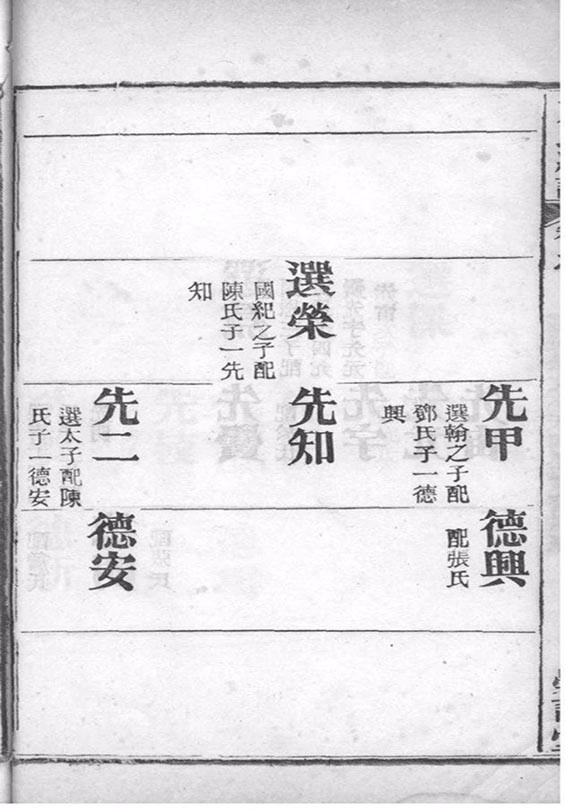 選榮
國紀之子配
陳氏子一先
知
先甲
選翰之子配
鄧氏子一德
興
先知
先二
選太子配陳
氏子一德安
德興
配張氏
德安